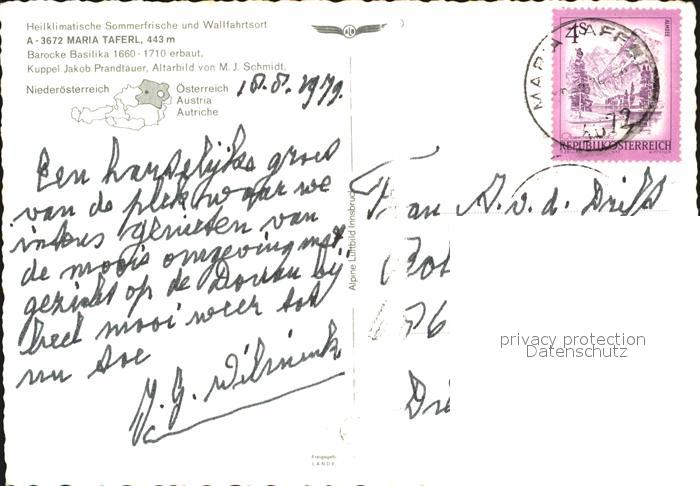 Heilklimatische Sommerfrische und Wallfahrtsort
A-3672 MARIA TAFERL, 443 m
Barocke Basilika 1660-1710 erbaut,
Kuppel Jakob Prandtauer, Altarbild von M. J. Schmidt.
Niederösterreich
Österreich
Austria
Autriche
18.8.1979.
Een hartelijke groet
van de plek waar we
intens genieten van
de mooie omgeving met
gezicht op de Donau bij
heel mooi weer tot
nu toe
J. J. Wilmink
Alpine Luftbild Innsbruck
Freigegeb
LANDE
4S
ALMSEE
REPUBLIK ÖSTERREICH
MARIA TAFERL
Fam A. v. d. Drift
76
Dri
privacy protection
Datenschutz